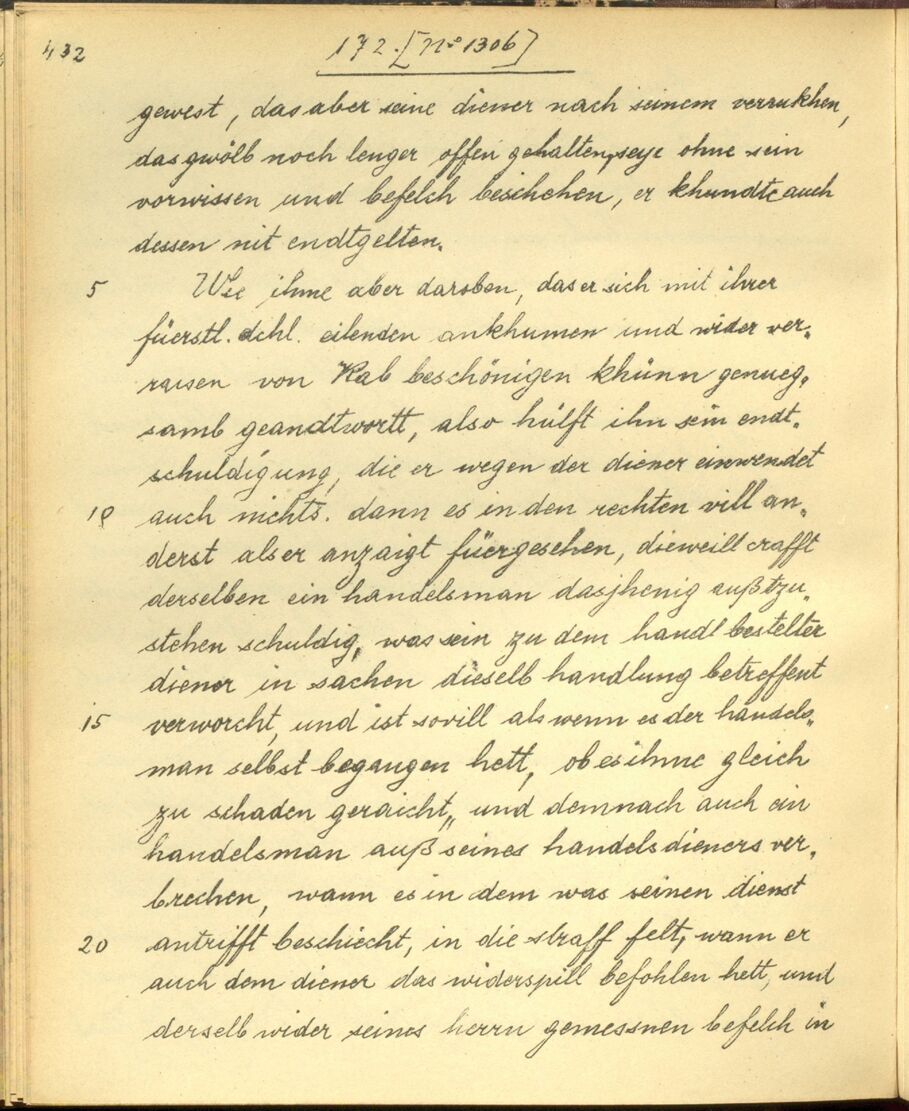 432
172. [N° 1306]
gewest, das aber seine diener nach seinem verrukhen,
das gwölb noch lenger offen gehalten, seye ohne sein
vorwissen und befelch beschehen, er khundte auch
dessen nit endtgelten.
5 Wie ihme aber daroben, das er sich mit ihrer
füerstl. dchl. eilenden ankhumen und wider ver„
raisen von Rab beschönigen khünn genueg„
samb geandtwortt, also hülfft ihn sein endt„
schuldigung, die er wegen der diener einwendet
10 auch nichts. dann es in den rechten vill an„
derst als er anzaigt füergesehen, dieweill crafft
derselben ein handelsman dasjhenig außtzu„
stehen schuldig, was sein zu dem handl bestelter
diener in sachen dieselb handlung betreffent
15 verworcht, und ist sovill als wenn es der handels„
man selbst begangen hett, ob es ihme gleich
zu schaden geraicht„ und demnach auch ein
handelsman auß seines handelsdieners ver„
brechen, wann es in dem was seinen dienst
20 antrifft beschiecht, in die straff felt, wann er
auch dem diener das widerspill befohlen hett, und
derselb wider seines herrn gemessnen befelch in